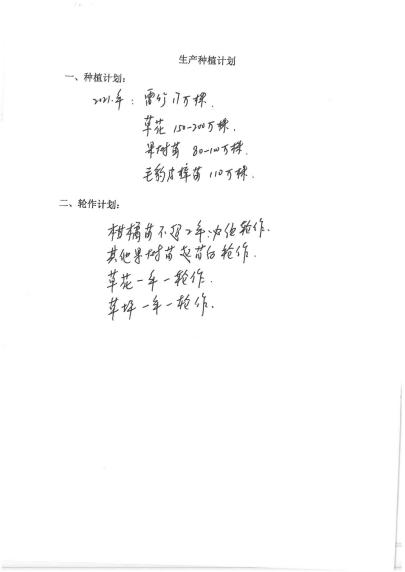 生产种植计划
一、种植计划:
2021.年: 雷竹 万棵.
草花 150-200万棵.
果树苗 80-100万棵.
毛豹皮樟苗 110万棵.
二、轮作计划:
柑橘苗不超2年:必须轮作.
其他果树苗起苗后轮作.
草花一年一轮作.
草坪一年一轮作.